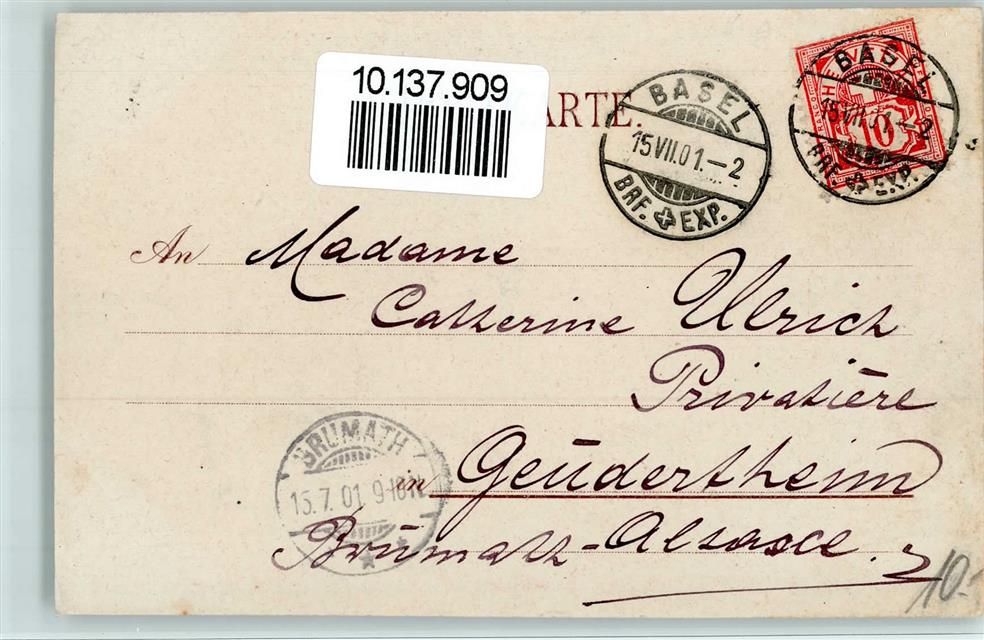 10.137.909
ARTE.
BASEL
15 VII.01.–2
BRF. EXP.
BASEL
15 VII.01.–2
BRF. EXP.
10
An Madame
Catherine Ulrich
Privatière
in Geüdertheim
Brümath-Alsace.
BRUMATH
15.7.01 9-10
10.-